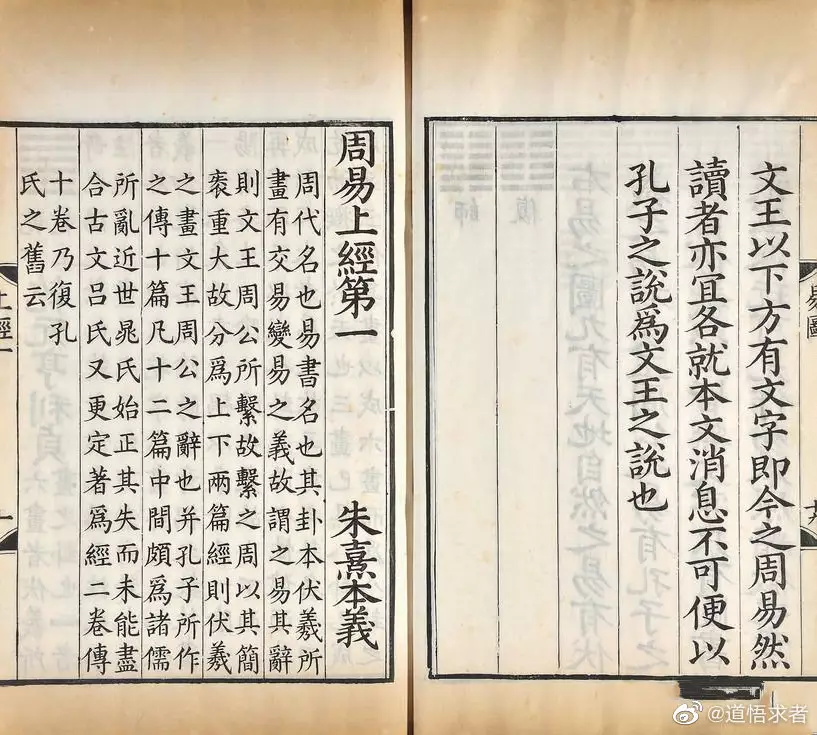 易圖
文王以下方有文字即今之周易然
讀者亦宜各就本文消息不可便以
孔子之說爲文王之說也
周易上經第一 朱熹本義
周代名也易書名也其卦本伏羲所
畫有交易變易之義故謂之易其辭
則文王周公所繫故繫之周以其簡
袠重大故分爲上下兩篇經則伏羲
之畫文王周公之辭也并孔子所作
之傳十篇凡十二篇中間頗爲諸儒
所亂近世晁氏始正其失而未能盡
合古文呂氏又更定著爲經二卷傳
十卷乃復孔
氏之舊云
上經一
@道悟求者